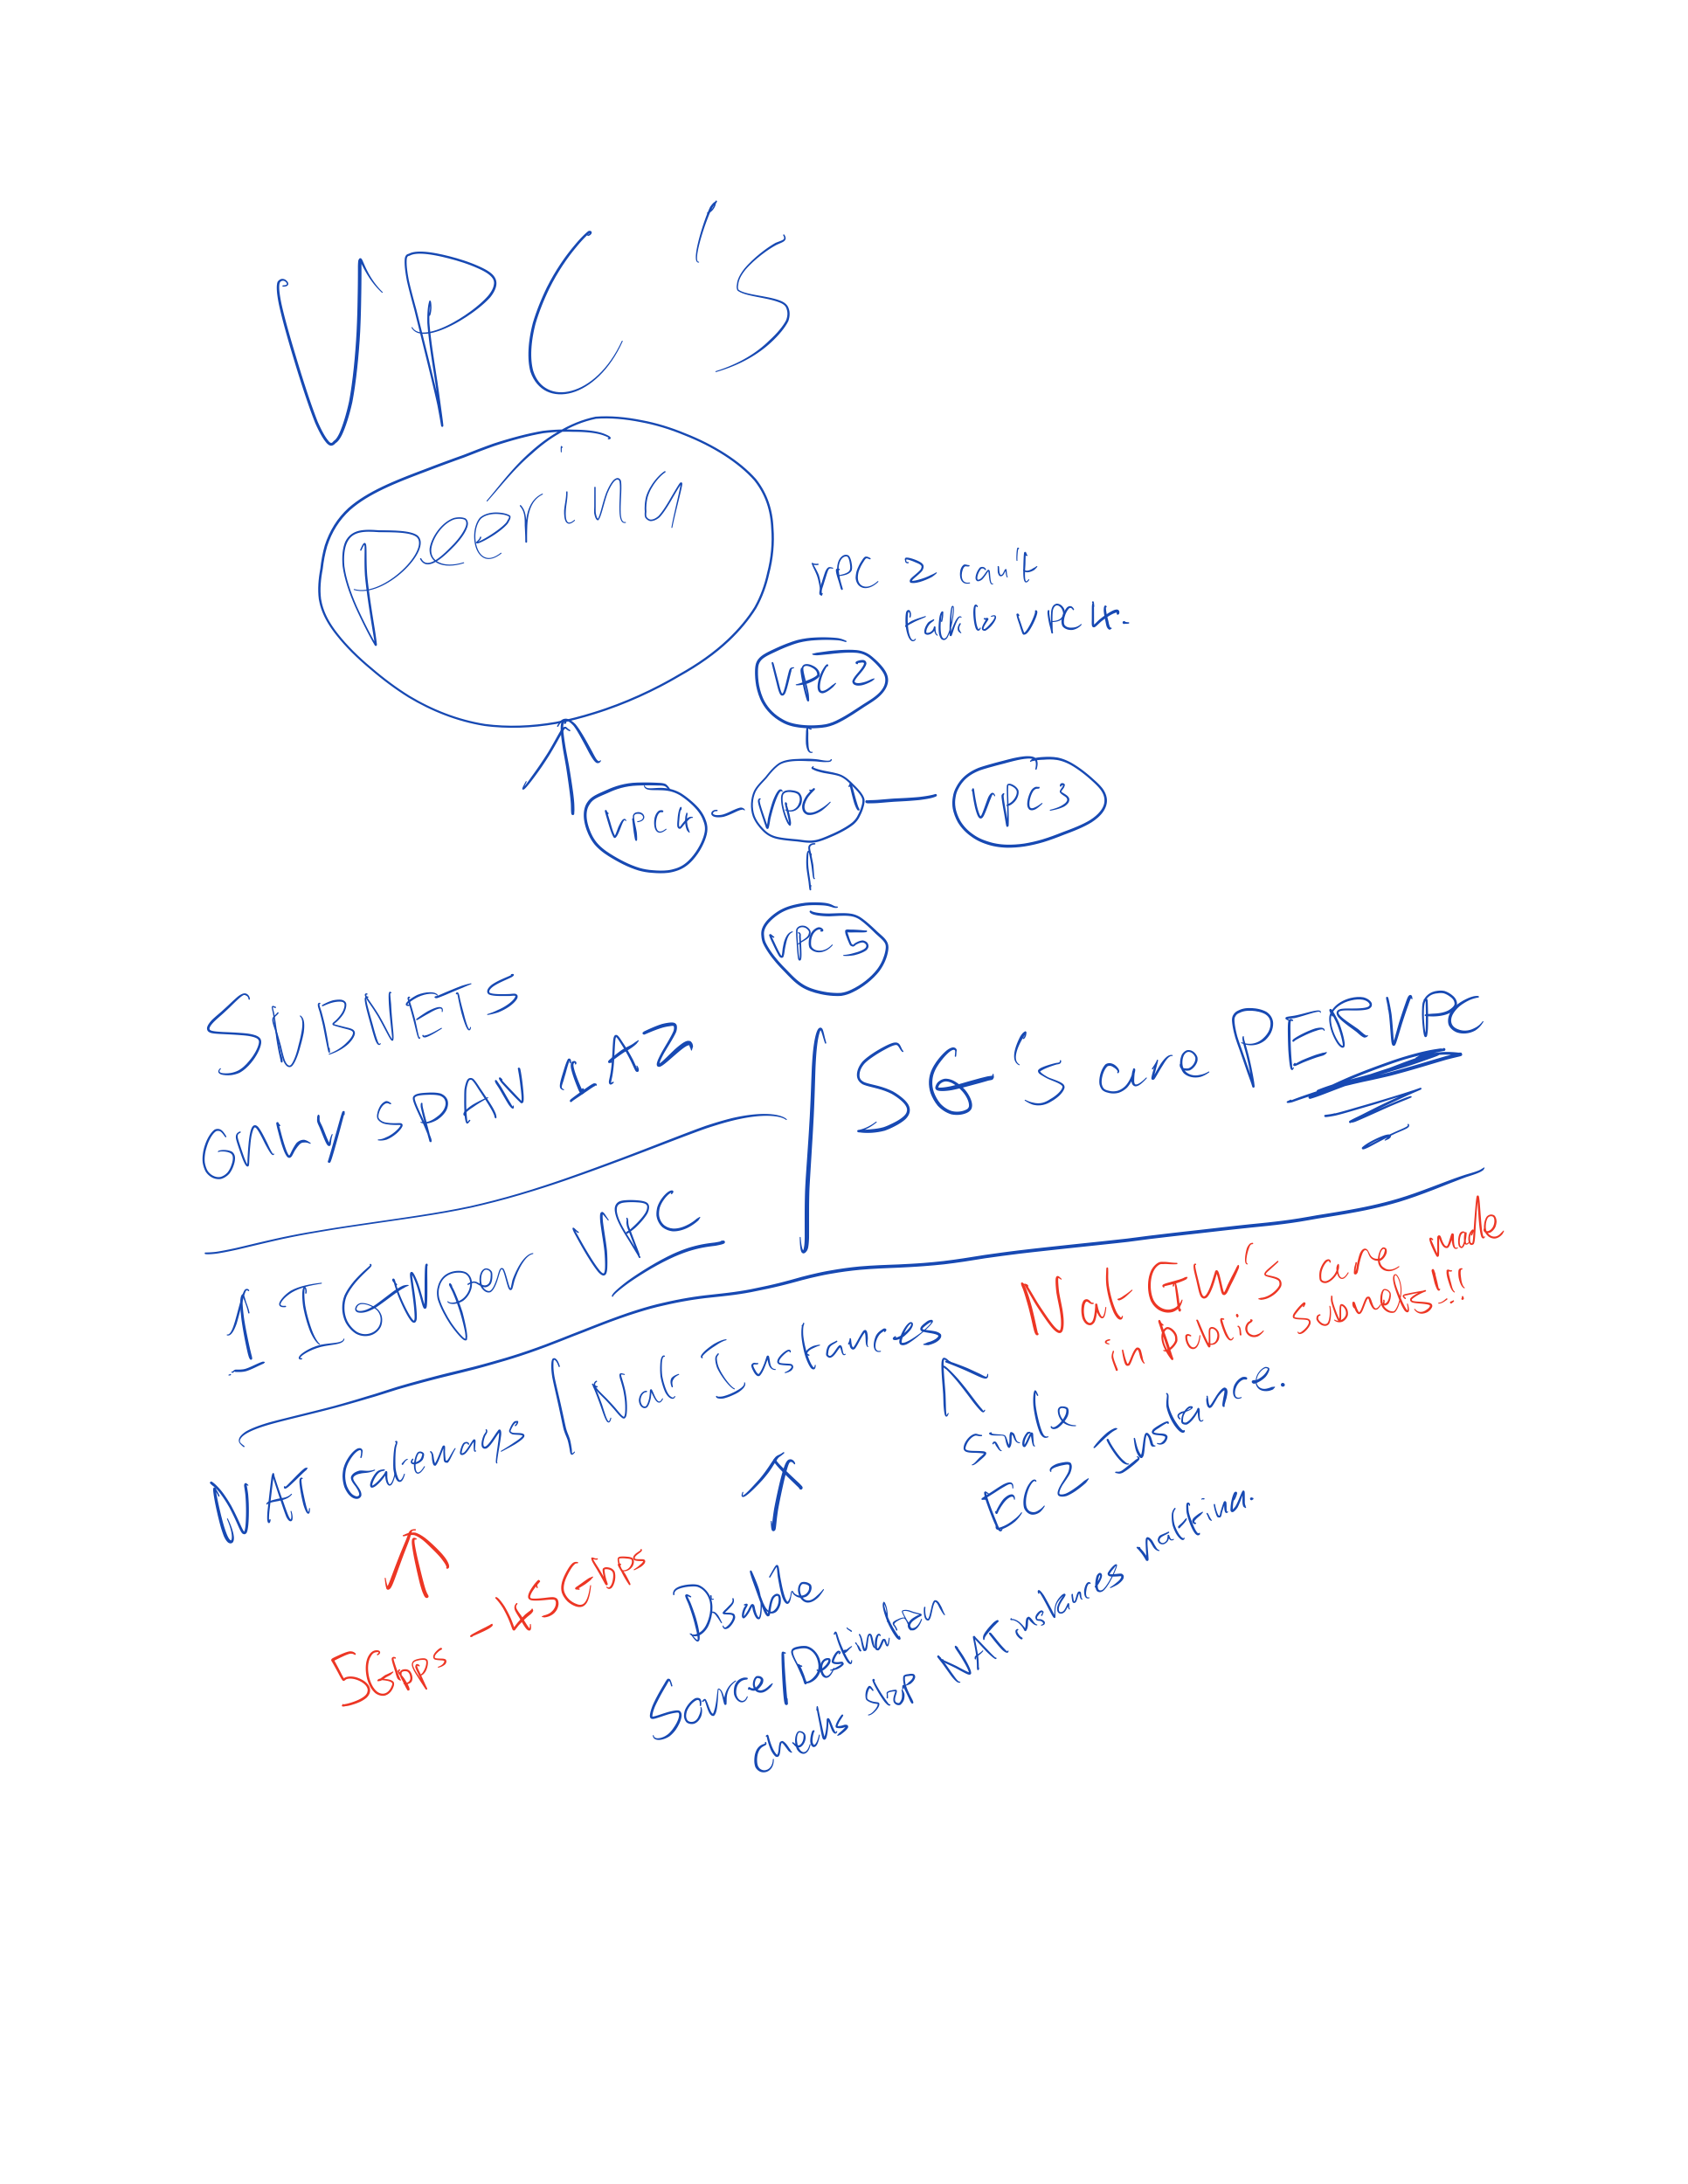 VPC's
Peering
VPC 2 can't
talk to VPC 4.
VPC 2
VPC 4
VPC 1
VPC 3
VPC 5
SUBNETS
ONLY SPAN 1 AZ
SG's are PER VPC
1 IGW per VPC
NAT Gateways | Nat Instances
Nat GW's are made
in public subnets...!!!
Single
EC2 Instance.
5Gbps - 45Gbps
Disable
Source/Destination
checks stop NAT instances natting.